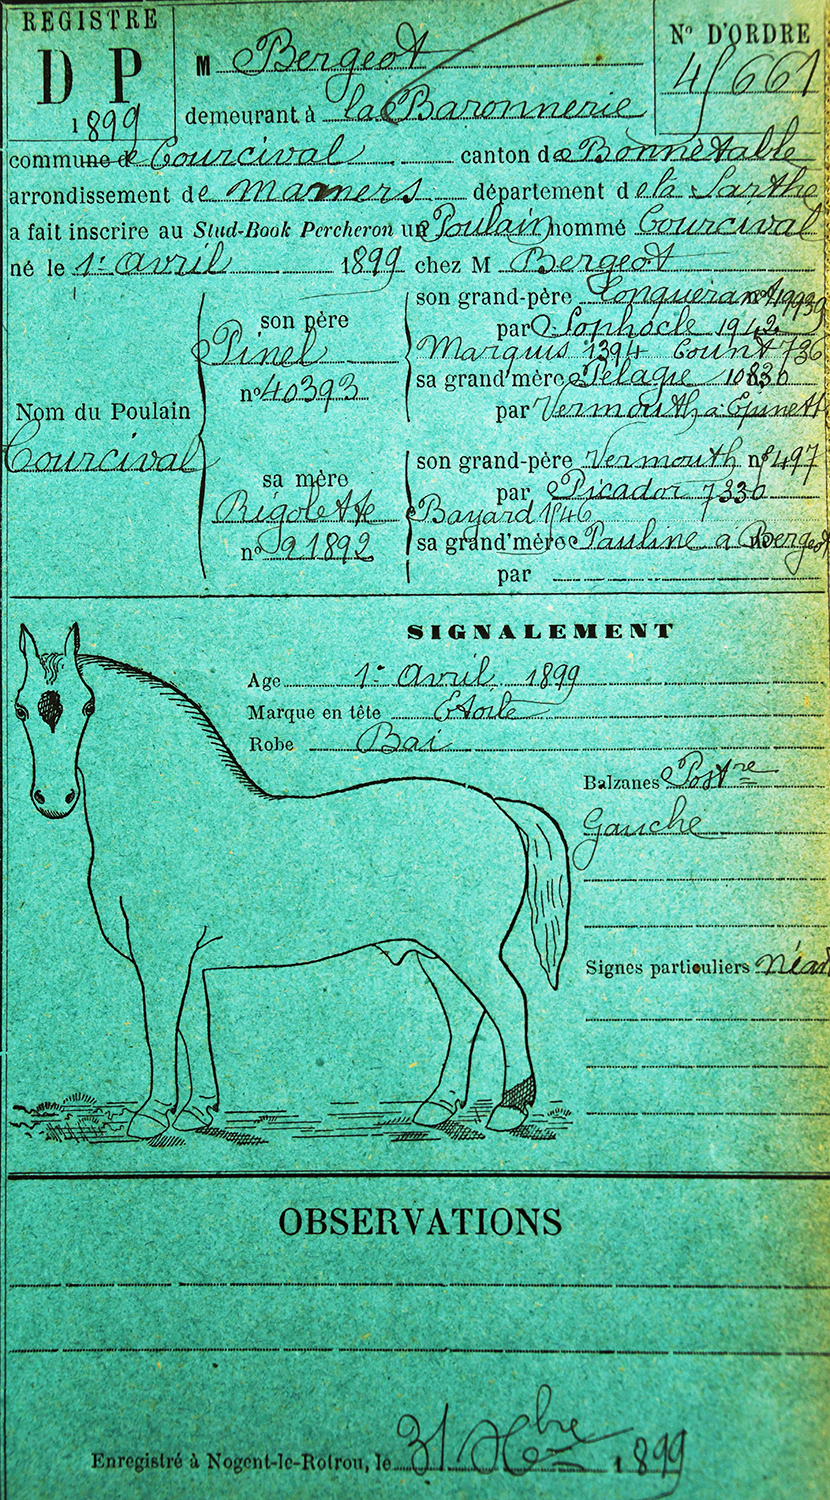 REGISTRE
D P
1899
M Bergeot
demeurant à la Baronnerie
N° D'ORDRE
45661
commune de Courcival canton de Bonnétable
arrondissement de Mamers département de la Sarthe
a fait inscrire au Stud-Book Percheron un Poulain nommé Courcival
né le 1er avril 1899 chez M Bergeot
Nom du Poulain
Courcival
son père
Pinel
n° 40393
son grand-père Conquérant n°
par Sophocle 1942
Marquis 1394 Count 736
sa grand'mère Pélagie 10830
par Vermouth à
sa mère
Rigolette
n° 21892
son grand-père Vermouth n° 1497
par Picador 7330
Bayard 1846
sa grand'mère Pauline à Bergeot
par
SIGNALEMENT
Age 1er Avril 1899
Marque en tête Etoile
Robe Bai
Balzanes Postre
Gauche
Signes particuliers Néant
OBSERVATIONS
Enregistré à Nogent-le-Rotrou, le 31 Xbre 1899